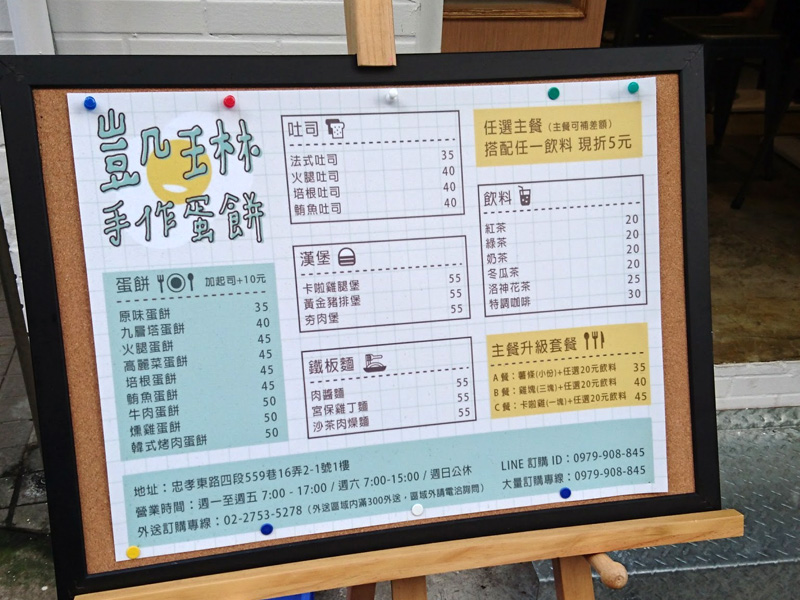 豈几玨林
手作蛋餅
蛋餅 加起司+10元
原味蛋餅 35
九層塔蛋餅 40
火腿蛋餅 45
高麗菜蛋餅 45
培根蛋餅 45
鮪魚蛋餅 45
牛肉蛋餅 50
燻雞蛋餅 50
韓式烤肉蛋餅 50
吐司
法式吐司 35
火腿吐司 40
培根吐司 40
鮪魚吐司 40
漢堡
卡啦雞腿堡 55
黃金豬排堡 55
夯肉堡 55
鐵板麵
肉醬麵 55
宮保雞丁麵 55
沙茶肉燥麵 55
任選主餐（主餐可補差額）
搭配任一飲料 現折5元
飲料
紅茶 20
綠茶 20
奶茶 20
冬瓜茶 20
洛神花茶 25
特調咖啡 30
主餐升級套餐
A餐：薯條(小份)+任選20元飲料 35
B餐：雞塊(三塊)+任選20元飲料 40
C餐：卡啦雞(一塊)+任選20元飲料 45
地址：忠孝東路四段559巷16弄2-1號1樓
營業時間：週一至週五 7:00 - 17:00 / 週六 7:00-15:00 / 週日公休
外送訂購專線：02-2753-5278（外送區域內滿300外送，區域外請電洽詢問）
LINE 訂購 ID：0979-908-845
大量訂購專線：0979-908-845